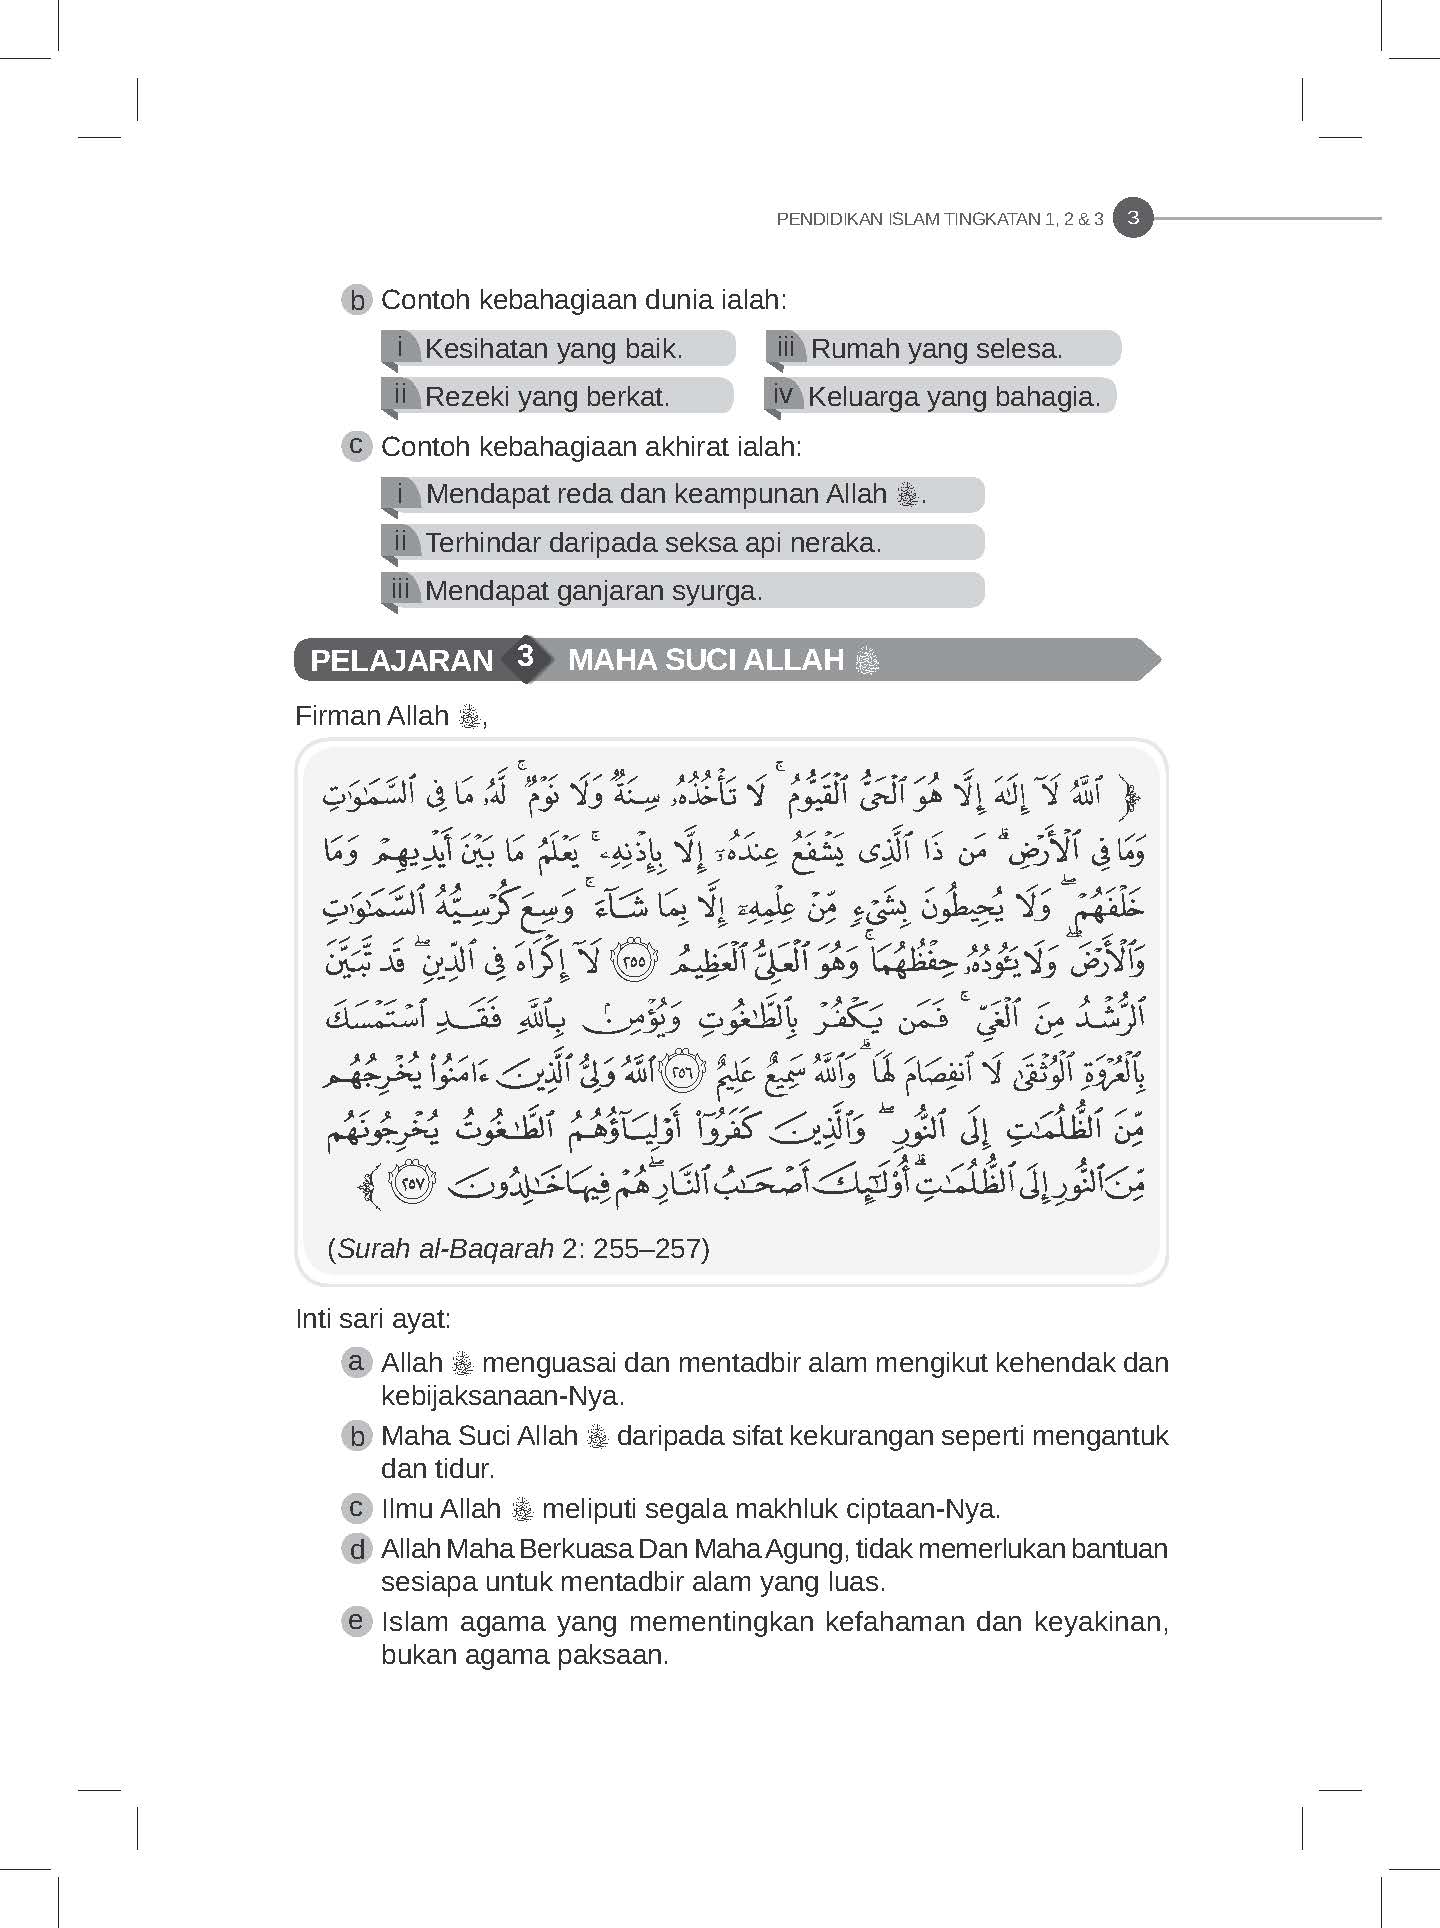 PENDIDIKAN ISLAM TINGKATAN 1, 2 & 3 3
b Contoh kebahagiaan dunia ialah:
i Kesihatan yang baik.
iii Rumah yang selesa.
ii Rezeki yang berkat.
iv Keluarga yang bahagia.
c Contoh kebahagiaan akhirat ialah:
i Mendapat reda dan keampunan Allah ﷻ.
ii Terhindar daripada seksa api neraka.
iii Mendapat ganjaran syurga.
PELAJARAN 3 MAHA SUCI ALLAH ﷻ
Firman Allah ﷻ,
﴿ ٱللَّهُ لَآ إِلَٰهَ إِلَّا هُوَ ٱلْحَىُّ ٱلْقَيُّومُ ۚ لَا تَأْخُذُهُۥ سِنَةٌ وَلَا نَوْمٌ ۚ لَّهُۥ مَا فِى ٱلسَّمَٰوَٰتِ
وَمَا فِى ٱلْأَرْضِ ۗ مَن ذَا ٱلَّذِى يَشْفَعُ عِندَهُۥٓ إِلَّا بِإِذْنِهِۦ ۚ يَعْلَمُ مَا بَيْنَ أَيْدِيهِمْ وَمَا
خَلْفَهُمْ ۖ وَلَا يُحِيطُونَ بِشَىْءٍ مِّنْ عِلْمِهِۦٓ إِلَّا بِمَا شَآءَ ۚ وَسِعَ كُرْسِيُّهُ ٱلسَّمَٰوَٰتِ
وَٱلْأَرْضَ ۖ وَلَا يَـُٔودُهُۥ حِفْظُهُمَا ۚ وَهُوَ ٱلْعَلِىُّ ٱلْعَظِيمُ ٢٥٥ لَآ إِكْرَاهَ فِى ٱلدِّينِ ۖ قَد تَّبَيَّنَ
ٱلرُّشْدُ مِنَ ٱلْغَىِّ ۚ فَمَن يَكْفُرْ بِٱلطَّٰغُوتِ وَيُؤْمِنۢ بِٱللَّهِ فَقَدِ ٱسْتَمْسَكَ
بِٱلْعُرْوَةِ ٱلْوُثْقَىٰ لَا ٱنفِصَامَ لَهَا ۗ وَٱللَّهُ سَمِيعٌ عَلِيمٌ ٢٥٦ ٱللَّهُ وَلِىُّ ٱلَّذِينَ ءَامَنُوا۟ يُخْرِجُهُم
مِّنَ ٱلظُّلُمَٰتِ إِلَى ٱلنُّورِ ۖ وَٱلَّذِينَ كَفَرُوٓا۟ أَوْلِيَآؤُهُمُ ٱلطَّٰغُوتُ يُخْرِجُونَهُم
مِّنَ ٱلنُّورِ إِلَى ٱلظُّلُمَٰتِ ۗ أُو۟لَٰٓئِكَ أَصْحَٰبُ ٱلنَّارِ ۖ هُمْ فِيهَا خَٰلِدُونَ ٢٥٧ ﴾
(Surah al-Baqarah 2: 255–257)
Inti sari ayat:
a Allah ﷻ menguasai dan mentadbir alam mengikut kehendak dan
kebijaksanaan-Nya.
b Maha Suci Allah ﷻ daripada sifat kekurangan seperti mengantuk
dan tidur.
c Ilmu Allah ﷻ meliputi segala makhluk ciptaan-Nya.
d Allah Maha Berkuasa Dan Maha Agung, tidak memerlukan bantuan
sesiapa untuk mentadbir alam yang luas.
e Islam agama yang mementingkan kefahaman dan keyakinan,
bukan agama paksaan.